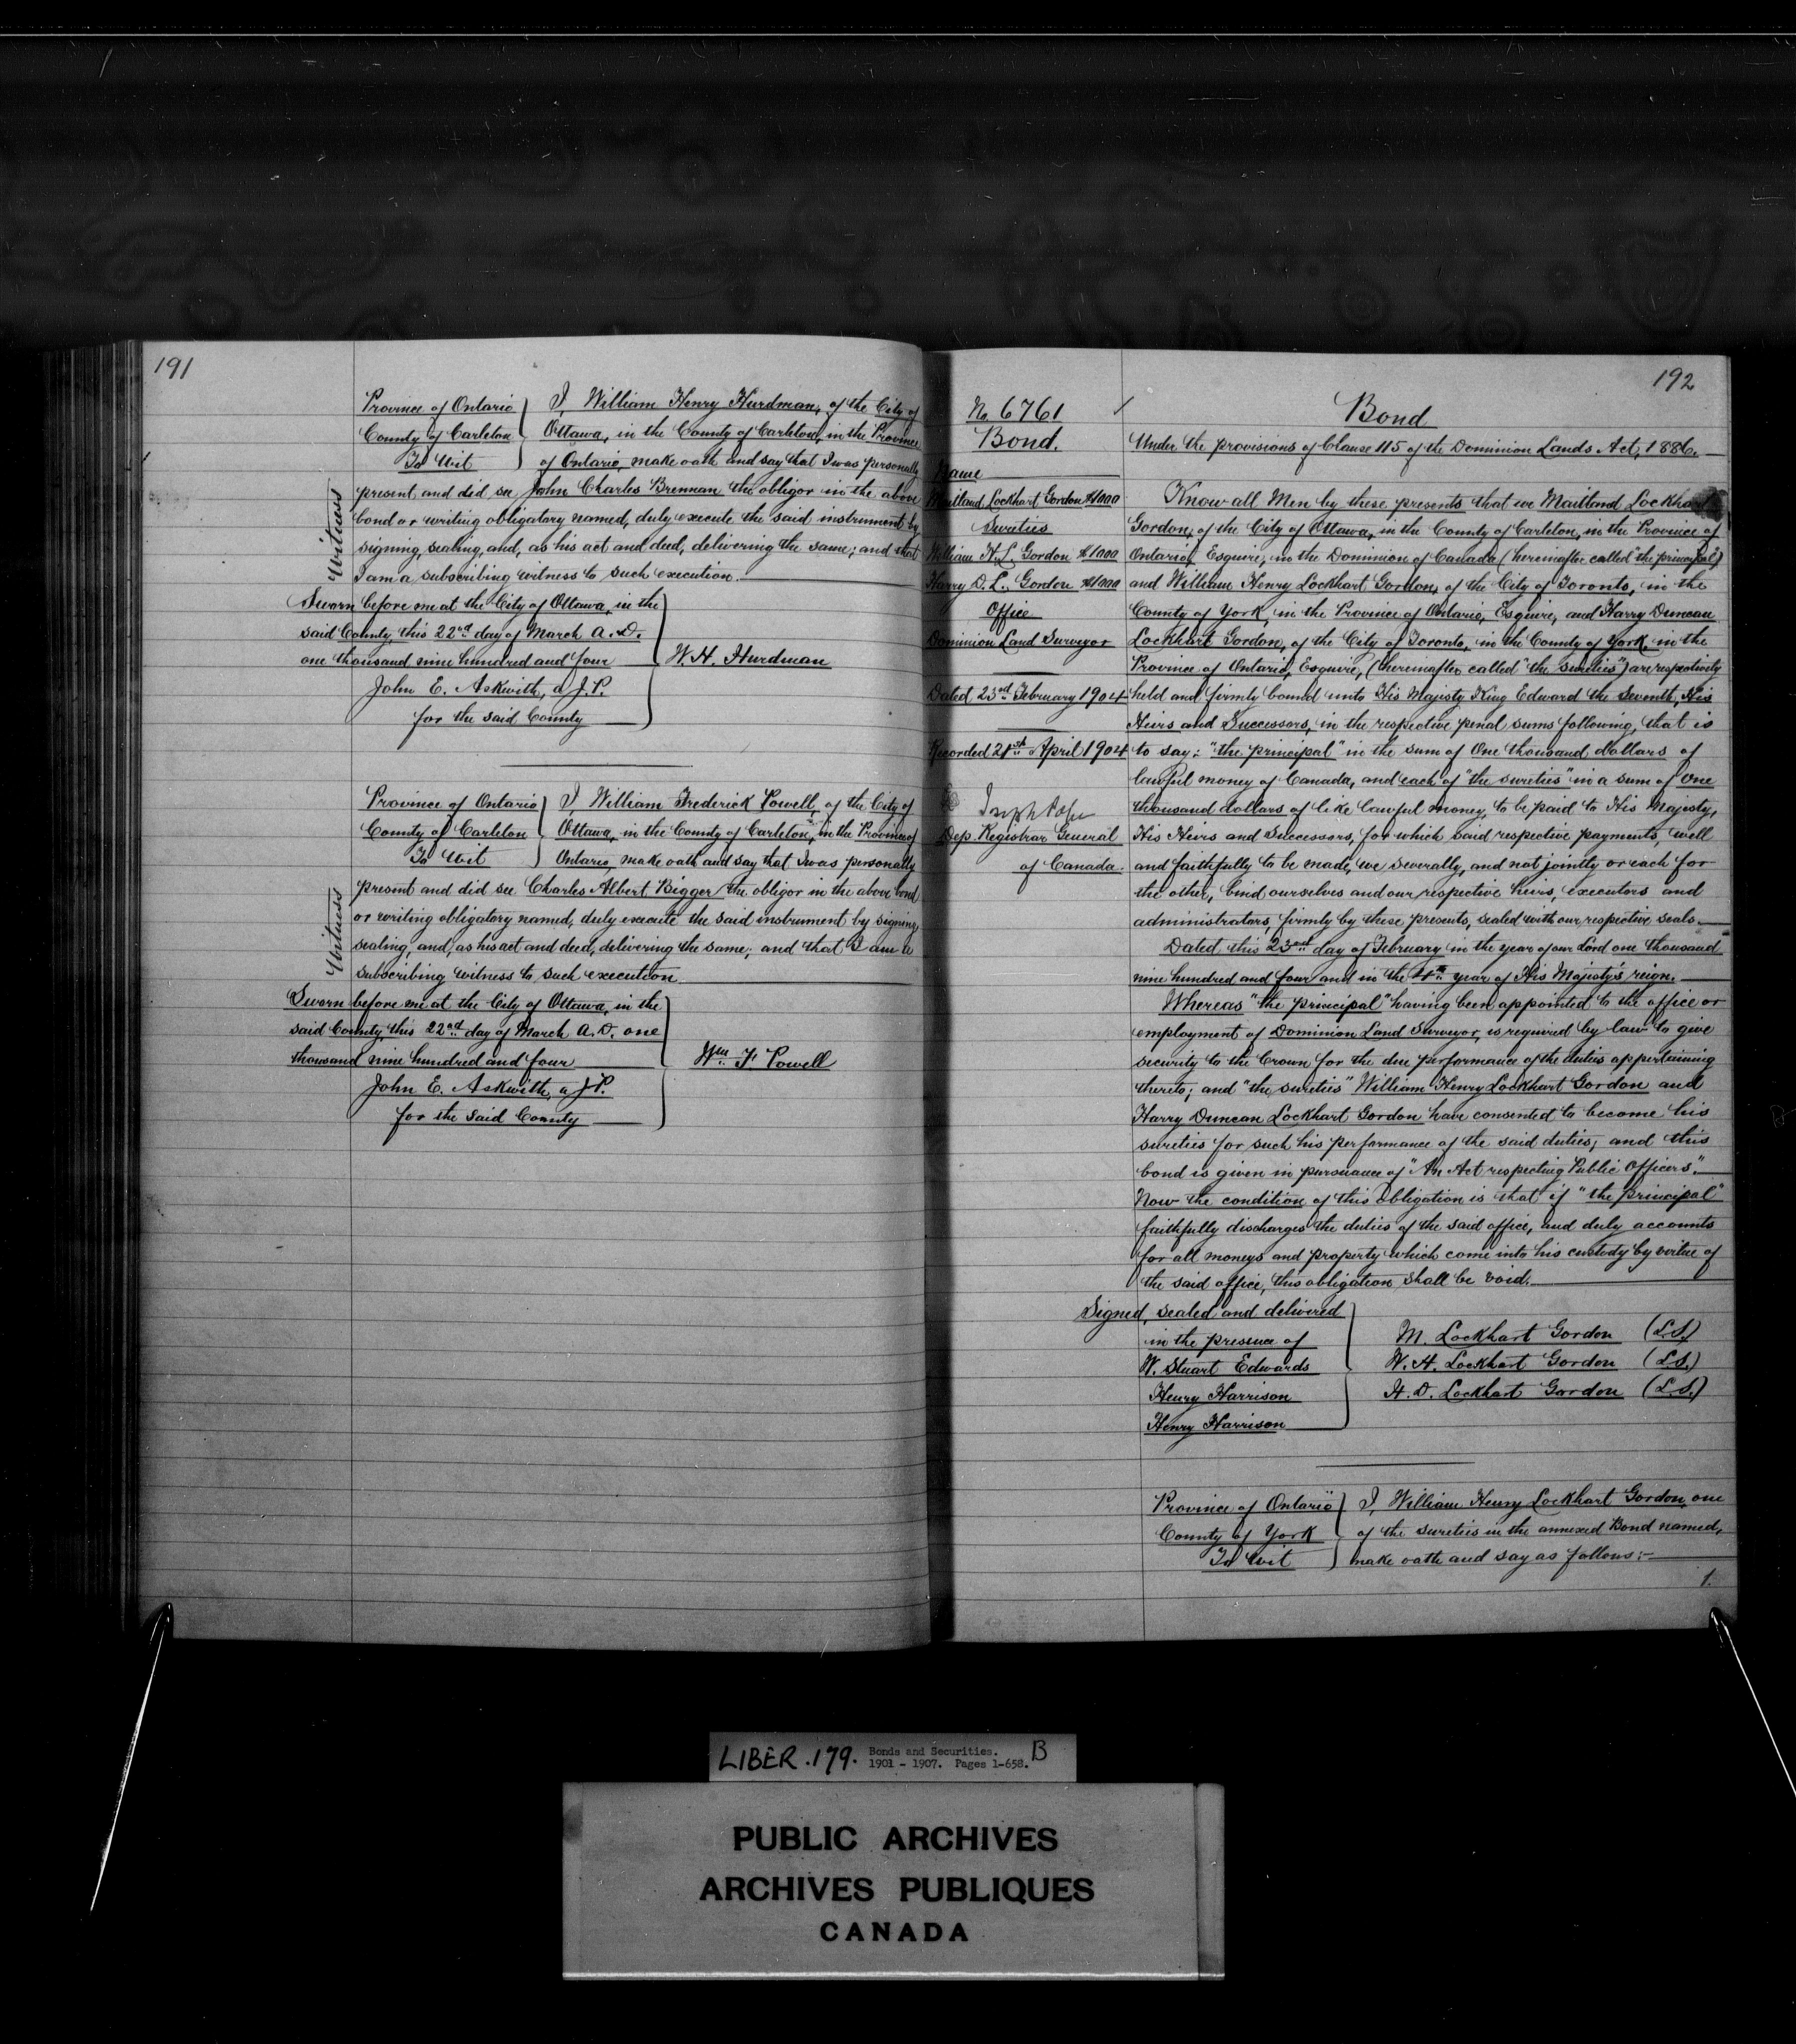 191
Province of Ontario
County of Carleton
To Wit
I, William Henry Hurdman, of the City of
Ottawa, in the County of Carleton, in the Province
of Ontario, make oath and say that I was personally
present and did see John Charles Brennan the obligor in the above
bond or writing obligatory named, duly execute the said instrument by
signing, sealing, and, as his act and deed, delivering the same; and that
I am a subscribing witness to such execution.
Witness
Sworn before me at the City of Ottawa, in the
said County this 22nd day of March A.D.
one thousand nine hundred and four
John E. Askwith, a J.P.
for the said County
W. H. Hurdman
Province of Ontario
County of Carleton
To Wit
I William Frederick Powell, of the City of
Ottawa, in the County of Carleton, in the Province of
Ontario, make oath and say that I was personally
present and did see Charles Albert Bigger the obligor in the above bond
or writing obligatory named, duly execute the said instrument by signing
sealing, and, as his act and deed, delivering the same; and that I am a
subscribing witness to such execution.
Witness
Sworn before me at the City of Ottawa, in the
said County, this 22nd day of March A.D. one
thousand nine hundred and four
John E. Askwith, a J.P.
for the said County
Wm. F. Powell
192
No. 6761
Bond.
Name
Maitland Lockhart Gordon $1000
Sureties
William H. L. Gordon $1000
Harry D. L. Gordon $1000
Office
Dominion Land Surveyor
Dated 23rd February 1904
Recorded 21st April 1904
Joseph Pope
Dep. Registrar General
of Canada.
Bond
Under the provisions of Clause 115 of the Dominion Lands Act, 1886.
Know all Men by these presents that we Maitland Lockhart
Gordon, of the City of Ottawa, in the County of Carleton, in the Province of
Ontario, Esquire, in the Dominion of Canada (hereinafter called "the principal")
and William Henry Lockhart Gordon, of the City of Toronto, in the
County of York, in the Province of Ontario, Esquire, and Harry Duncan
Lockhart Gordon, of the City of Toronto, in the County of York, in the
Province of Ontario, Esquire, (hereinafter called "the sureties") are respectively
held and firmly bound unto His Majesty King Edward the Seventh, His
Heirs and Successors, in the respective penal sums following, that is
to say: "the principal" in the sum of One thousand dollars of
lawful money of Canada, and each of "the sureties" in a sum of One
thousand dollars of like lawful money, to be paid to His Majesty,
His Heirs and Successors, for which said respective payments, well
and faithfully to be made, we severally, and not jointly or each for
the other, bind ourselves and our respective heirs, executors and
administrators, firmly by these presents, sealed with our respective seals.
Dated this 23rd day of February in the year of our Lord one thousand
nine hundred and four and in the 4th year of His Majesty's reign.
Whereas "the principal" having been appointed to the office or
employment of Dominion Land Surveyor, is required by law to give
security to the Crown for the due performance of the duties appertaining
thereto; and "the sureties" William Henry Lockhart Gordon and
Harry Duncan Lockhart Gordon have consented to become his
sureties for such his performance of the said duties; and this
bond is given in pursuance of "An Act respecting Public Officers".
Now the condition of this obligation is that if "the principal"
faithfully discharges the duties of the said office, and duly accounts
for all moneys and property which come into his custody by virtue of
the said office, this obligation shall be void.
Signed, sealed and delivered
in the presence of
W. Stuart Edwards
Henry Harrison
Henry Harrison
M. Lockhart Gordon (L.S.)
W. H. Lockhart Gordon (L.S.)
H. D. Lockhart Gordon (L.S.)
Province of Ontario
County of York
To Wit
I, William Henry Lockhart Gordon, one
of the sureties in the annexed Bond named,
make oath and say as follows:-
1.
LIBER. 179. Bonds and Securities. B
1901 - 1907. Pages 1-658.
PUBLIC ARCHIVES
ARCHIVES PUBLIQUES
CANADA